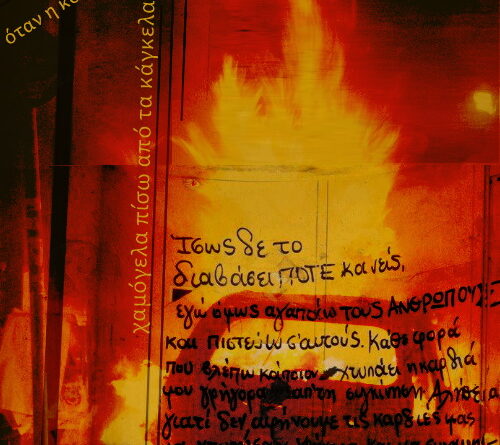 όταν η κ
χαμόγελα πίσω από τα κάγκελα
Ίσως δε το
διαβάσει ΠΟΤΕ κανείς,
εγώ όμως αγαπάω τους ΑΝΘΡΩΠΟΥΣ
και πιστεύω σ'αυτούς. Κάθε φορά
που βλέπω κάποιον χτυπάει η καρδιά
μου γρήγορα απ'τη συγκίνηση Αλήθεια
γιατί δεν αφήνουμε τις καρδιές μας